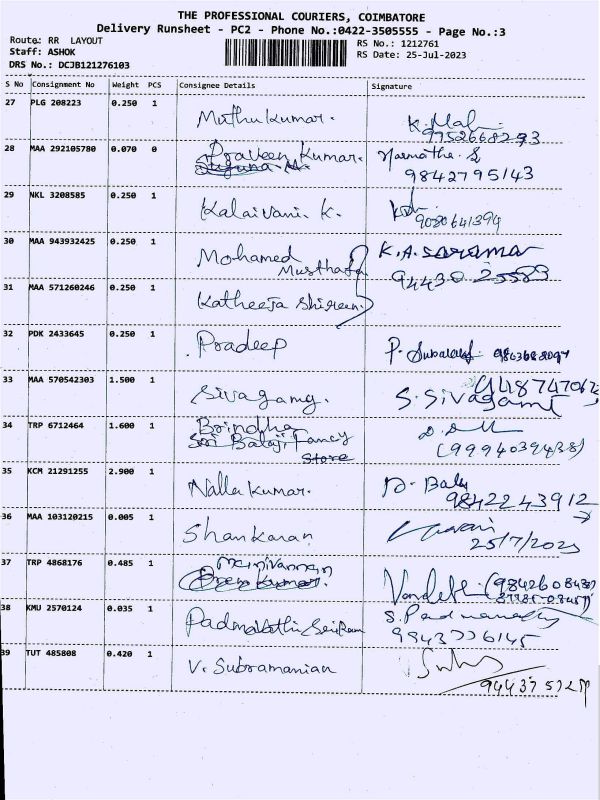 THE PROFESSIONAL COURIERS, COIMBATORE
Delivery Runsheet - PC2 - Phone No.:0422-3505555 - Page No.:3
Route: RR LAYOUT
RS No.: 1212761
Staff: ASHOK
RS Date: 25-Jul-2023
DRS No.: DCJB121276103
S No Consignment No Weight PCS Consignee Details Signature
27 PLG 208223 0.250 1 Muthukumar.
9952668293
28 MAA 292105780 0.070 0 Praveen Kumar.
9842795143
29 NKL 3208585 0.250 1 Kalaivani. K.
9080641394
30 MAA 943932425 0.250 1 Mohamed Musthafa K.A.
31 MAA 571260246 0.250 1 Katheeja Shireen.
32 PDK 2433645 0.250 1 Pradeep P.
33 MAA 570542303 1.500 1 Sivagamy. S. Sivagami
34 TRP 6712464 1.600 1 Brindha
Sri Balaji Fancy
Store
(9994039438)
35 KCM 21291255 2.900 1 Nalla Kumar.
9842243912
36 MAA 103120215 0.005 1 Shankaran
25/7/2023
37 TRP 4868176 0.485 1 Manivannan
38 KMU 2570124 0.035 1 S. Padmanabha
9843776145
39 TUT 485808 0.420 1 V. Subramanian